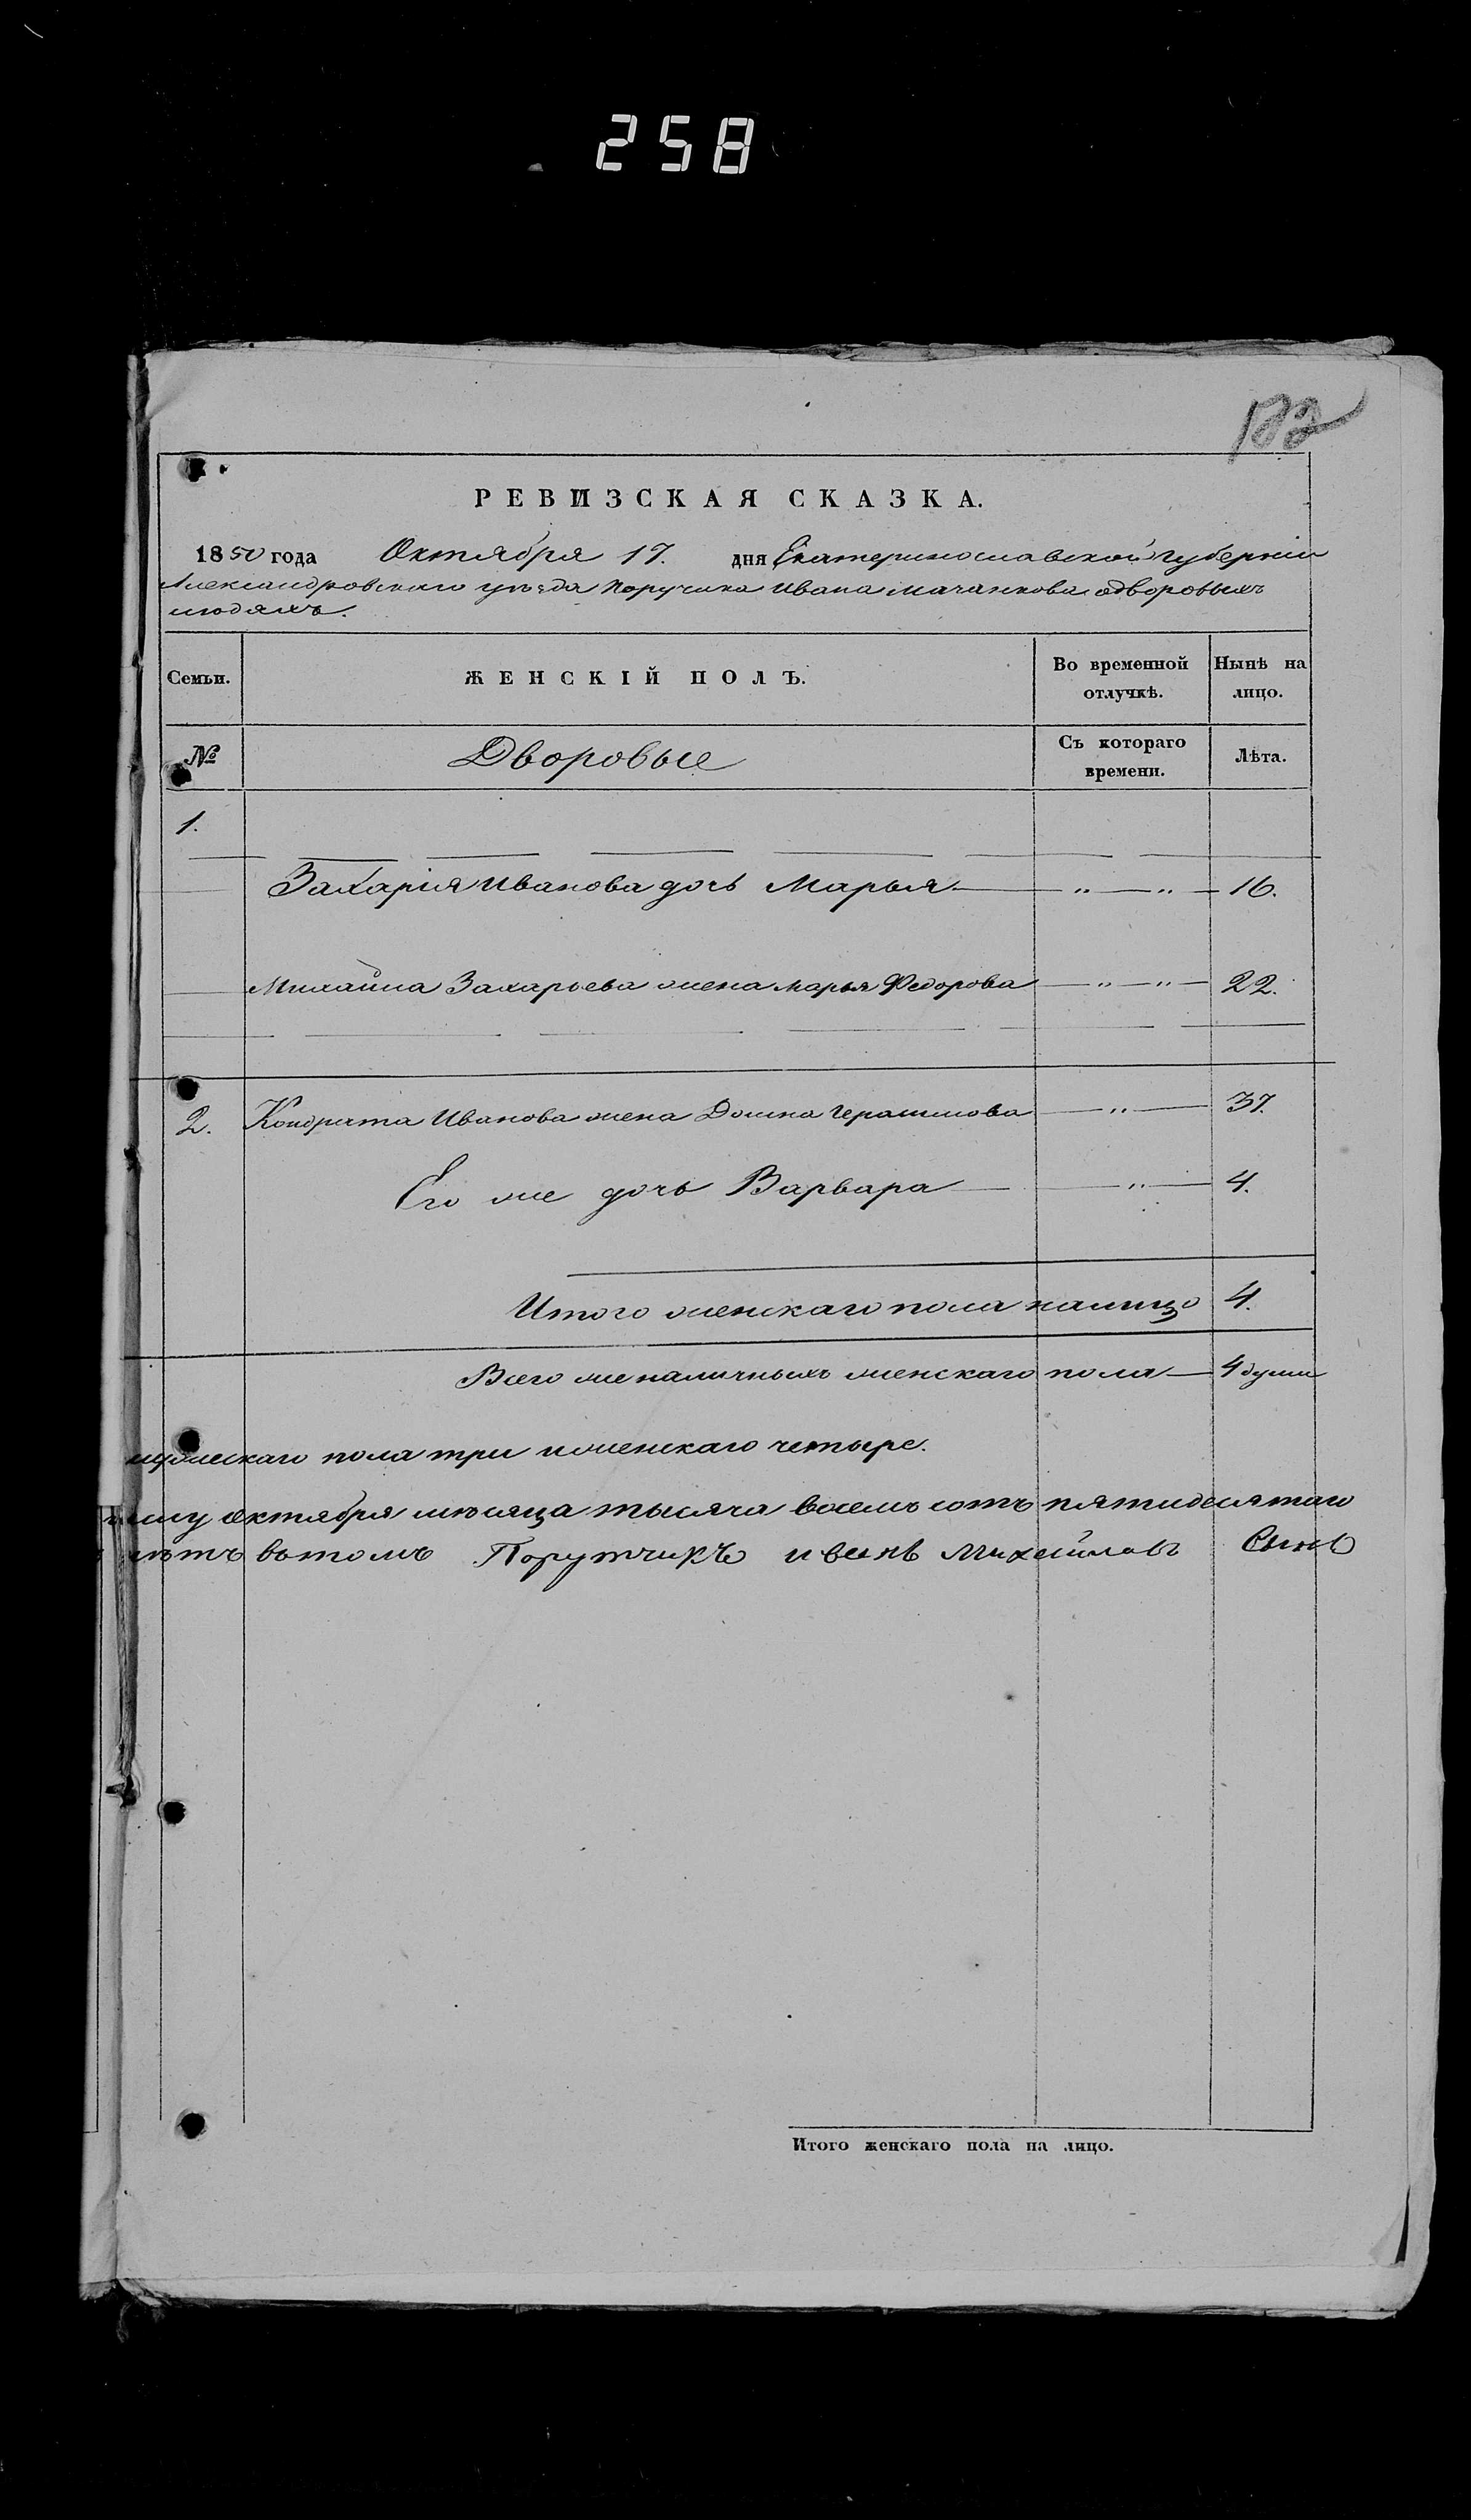 258
РЕВИЗСКАЯ СКАЗКА.
1850 года Октября 17. дня Екатеринославской губернiи
Александровского уѣзда Поручика Ивана Мачанкова одворовыхъ
людяхъ.
Семьи. ЖЕНСКIЙ ПОЛЪ. Во временной отлучкѣ. Нынѣ на лицо.
№ Дворовые Съ котораго времени. Лѣта.
1.
Захарiя Иванова дочь Марья — " — " — 16.
Михайла Захарьева жена Марья Федорова — " — " — 22.
2. Кондрата Иванова жена Домна Герасимова — " — 37.
Его же дочь Варвара — " — 4.
Итого женскаго пола налицо 4.
Всего же наличныхъ женскаго пола — 4 души
мужескаго пола три иженскаго четыре.
октября мѣсяца тысяча восемъ сотъ пятидесятаго
вътомъ Порутчикъ иванъ Михайловъ Сынъ
Итого женскаго пола на лицо.